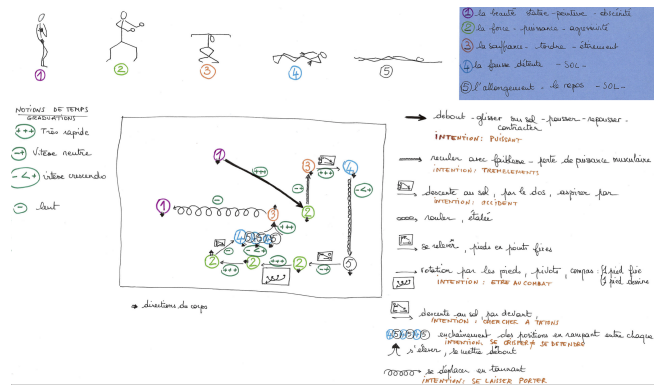 1 2 3 4 5
1 la beauté statue - peinture - obscénité
2 la force - puissance - agressivité
3 la souffrance - tordue - étirement
4 la fausse détente - SOL -
5 l'allongement - le repos - SOL -
NOTIONS DE TEMPS
GRADUATIONS
+++ Très rapide
-+ Vitesse neutre
-<+ vitesse crescendo
- lent
1 +++ 2 -+ 3 +++ 4 -<+ 5 -+ 2 +++ 2 +++ 2 - 4 5 4 5 4 5 -<+ +++ 3 - 1
directions de corps
debout - glisser au sol - pousser - repousser -
contracter
INTENTION: PUISSANT
reculer avec faiblesse - perte de puissance musculaire
INTENTION: TREMBLEMENTS
descente au sol, par le dos, aspirer par
INTENTION: ACCIDENT
rouler, étalée
se relever, pieds en points fixes
rotation par les pieds, pivots, compas: 1 pied fixe
1 pied dessine
INTENTION: ETRE AU COMBAT
descente au sol, par devant,
INTENTION: CHERCHER A TATONS
4 5 4 5 4 5 enchaînement des positions en rampant entre chaque
INTENTION: SE CRISPER & SE DEFENDRE
s'élever, se mettre debout
se déplacer en tournant
INTENTION: SE LAISSER PORTER